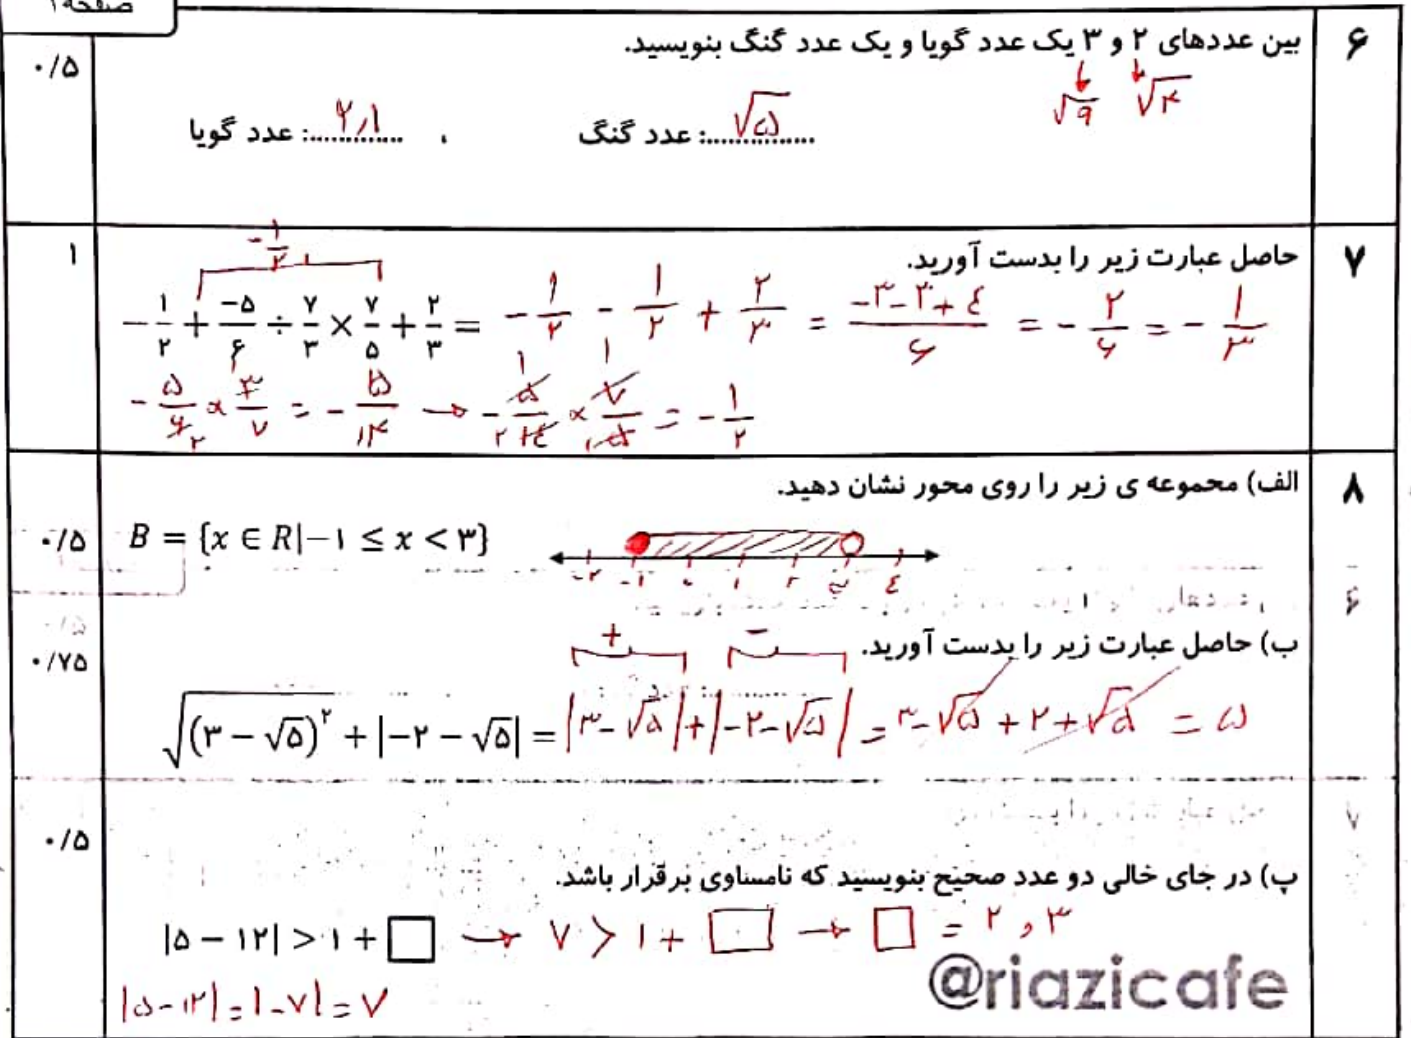 صفحه ۱
۶
بین عددهای ۲ و ۳ یک عدد گویا و یک عدد گنگ بنویسید.
۰/۵
√۹ √۴
عدد گنگ :....√۵.... ، عدد گویا :....۲٫۱....
۷
حاصل عبارت زیر را بدست آورید.
۱
-۱/۲
-۱/۲ + -۵/۶ ÷ ۷/۳ × ۷/۵ + ۲/۳ = -۱/۲ - ۱/۲ + ۲/۳ = (-۳-۳+۴)/۶ = -۲/۶ = -۱/۳
-۵/۶ × ۳/۷ = -۵/۱۴ → -۵/۱۴ × ۷/۵ = -۱/۲
۸
الف) محموعه ی زیر را روی محور نشان دهید.
۰/۵
B = {x ∈ R|-۱ ≤ x < ۳}
-۲ -۱ ۰ ۱ ۲ ۳ ۴
ب) حاصل عبارت زیر را بدست آورید.
۰/۷۵
+ -
√(۳ - √۵)^۲ + |-۲ - √۵| = |۳-√۵|+|-۲-√۵| = ۳-√۵+۲+√۵ = ۵
۰/۵
پ) در جای خالی دو عدد صحیح بنویسید که نامساوی برقرار باشد.
|۵ - ۱۲| > ۱ + □ → ۷ > ۱ + □ → □ = ۲ , ۳
|۵-۱۲| = |-۷| = ۷
@riazicafe